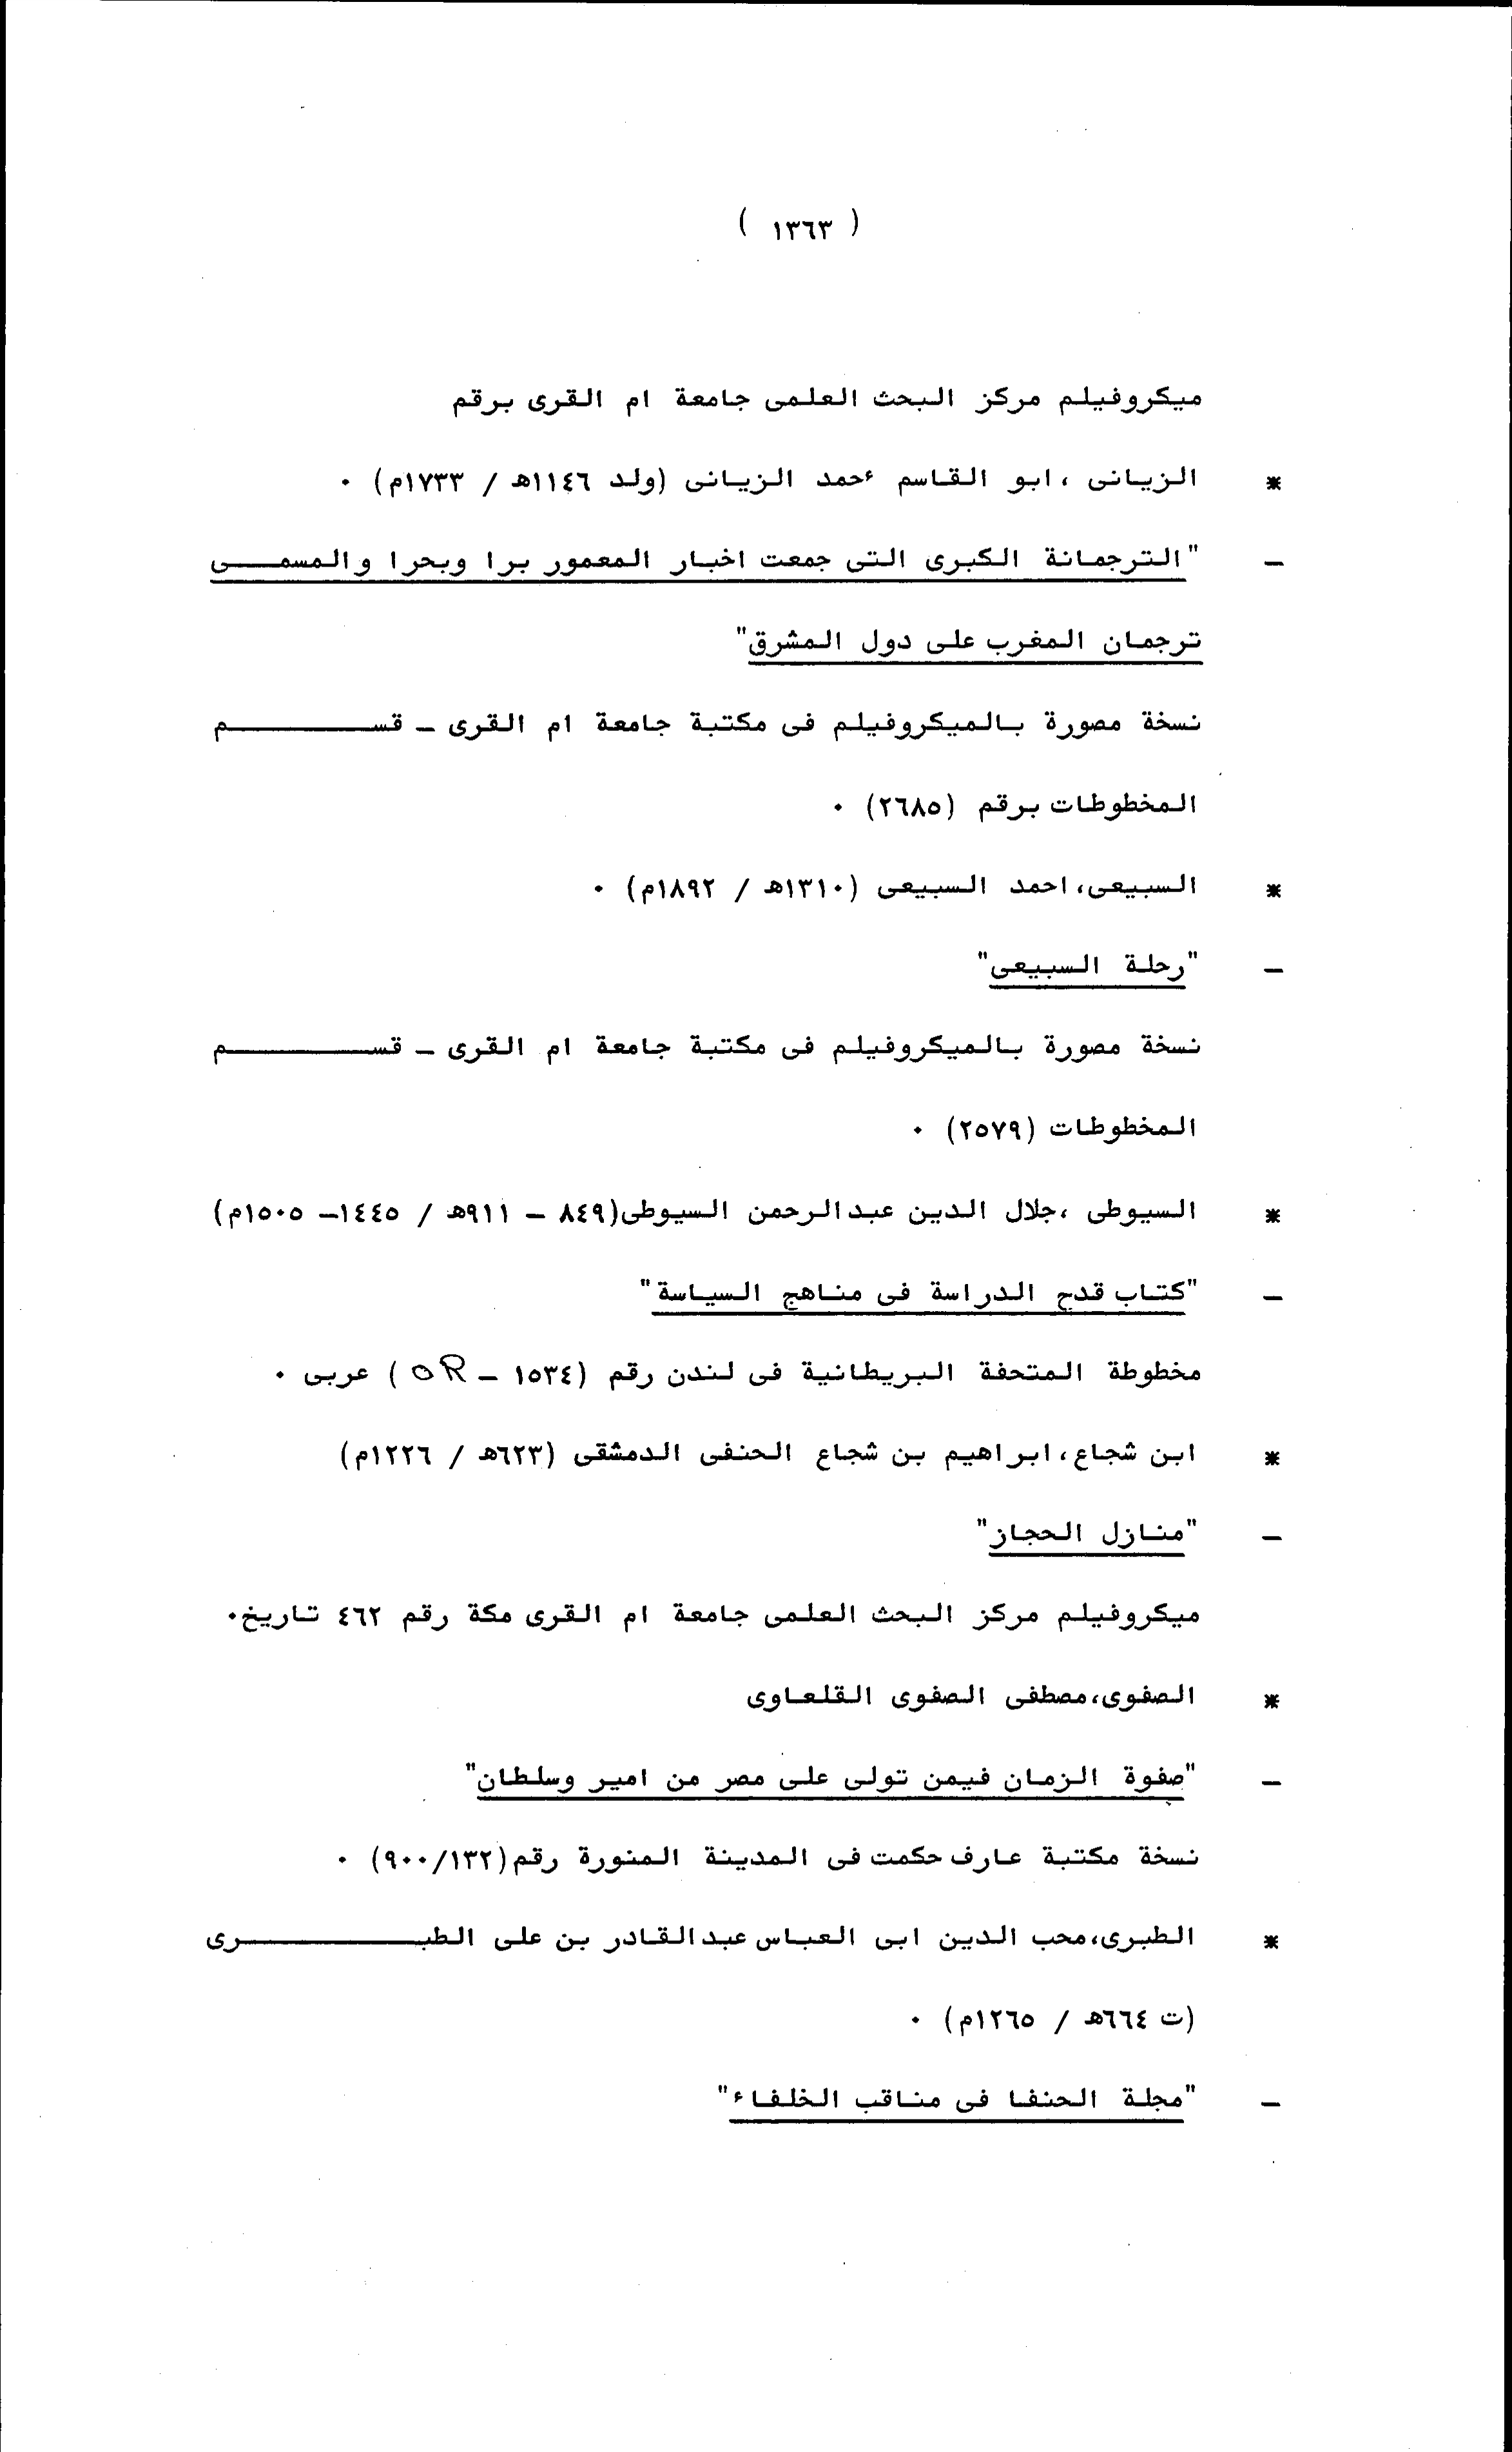 ( ١٣٦٣ )
ميكروفيلم مركز البحث العلمى جامعة ام القرى برقم
* الزيانى ، ابو القاسم ءحمد الزيانى (ولد ١١٤٦ه / ١٧٣٣م) ٠
– "الترجمانة الكبرى التى جمعت اخبار المعمور برا وبحرا والمسمــــى
ترجمان المغرب على دول المشرق"
نسخة مصورة بالميكروفيلم فى مكتبة جامعة ام القرى – قســــــــــم
المخطوطات برقم (٢٦٨٥) ٠
* السبيعى، احمد السبيعى (١٣١٠ه / ١٨٩٢م) ٠
– "رحلة السبيعى"
نسخة مصورة بالميكروفيلم فى مكتبة جامعة ام القرى – قســــــــــم
المخطوطات (٢٥٧٩) ٠
* السيوطى ،جلال الدين عبدالرحمن السيوطى(٨٤٩ – ٩١١ه / ١٤٤٥– ١٥٠٥م)
– "كتاب قدح الدراسة فى مناهج السياسة"
مخطوطة المتحفة البريطانية فى لندن رقم (١٥٣٤ – OR ) عربى ٠
* ابن شجاع، ابراهيم بن شجاع الحنفى الدمشقى (٦٢٣ه / ١٢٢٦م)
– "منازل الحجاز"
ميكروفيلم مركز البحث العلمى جامعة ام القرى مكة رقم ٤٦٢ تاريخ٠
* الصفوى،مصطفى الصفوى القلعاوى
– "صفوة الزمان فيمن تولى على مصر من امير وسلطان"
نسخة مكتبة عارف حكمت فى المدينة المنورة رقم(٩٠٠/١٣٢) ٠
* الطبرى،محب الدين ابى العباس عبدالقادر بن على الطبــــــــــرى
(ت ٦٦٤ه / ١٢٦٥م) ٠
– "مجلة الحنفا فى مناقب الخلفاء"